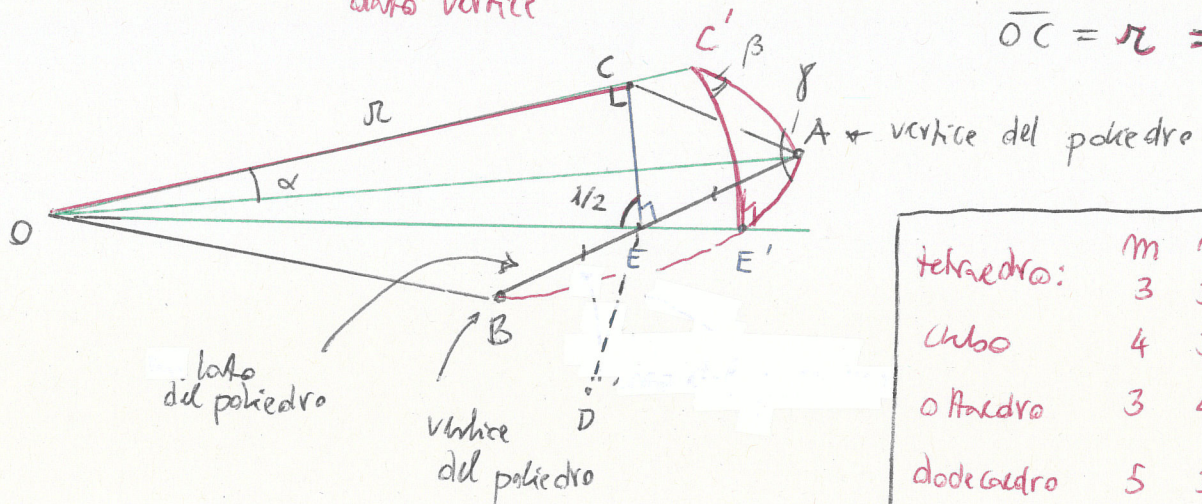 dato vertice
OC = r =
C'
β
C
γ
r
A ← vertice del poliedro
α
λ/2
O
E
E'
B
lato
del poliedro
D
vertice
del poliedro
m
tetraedro: 3
cubo 4
ottaedro 3 4
dodecaedro 5